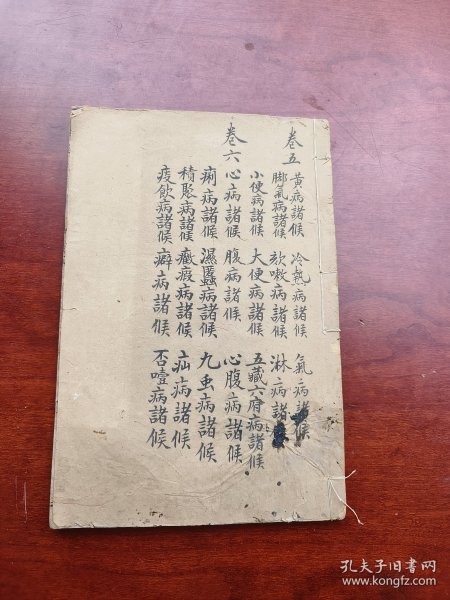 卷五
黄病諸候 冷熱病諸候 氣病諸候
脚氣病諸候 欬嗽病諸候 淋病諸候
小便病諸候 大便病諸候 五藏六府病諸候
卷六
心病諸候 腹病諸候 心腹病諸候
痢病諸候 濕䘌病諸候 九虫病諸候
積聚病諸候 癥瘕病諸候 疝病諸候
痰飲病諸候 癖病諸候 否噎病諸候
孔夫子旧书网
www.kongfz.com